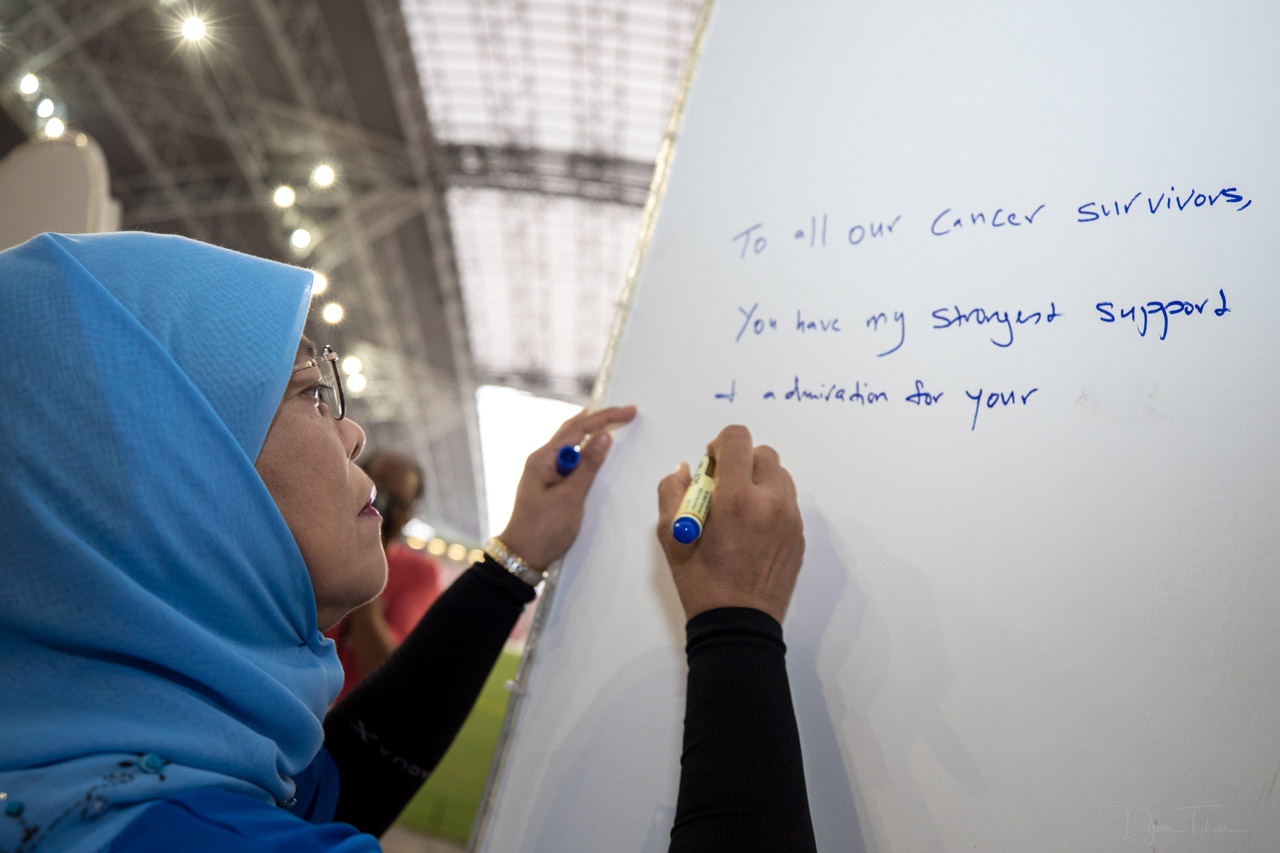 To all our Cancer survivors,
You have my strongest support
& admiration for your